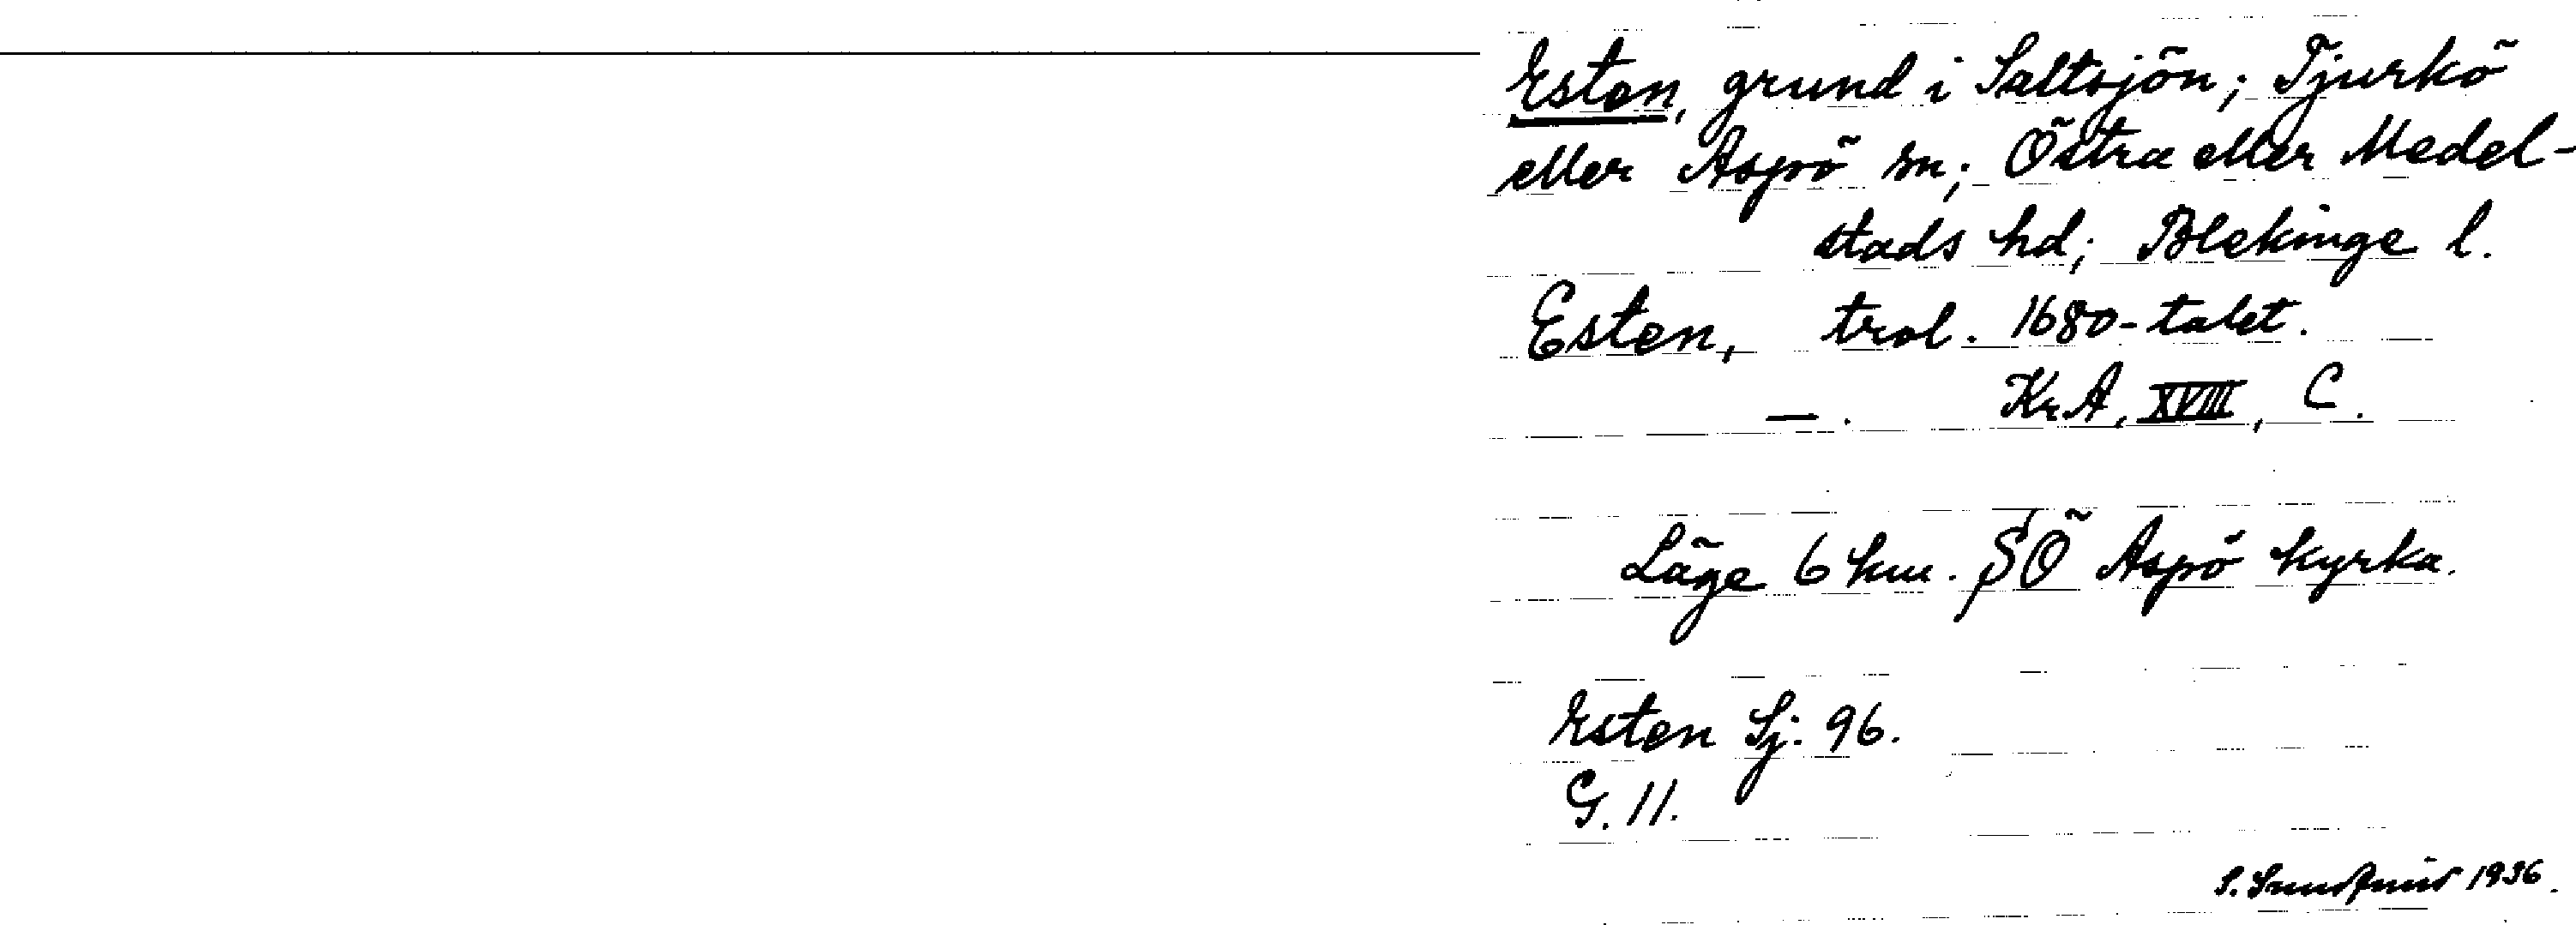 Esten, grund i Saltsjön; Tjurkö
eller Aspö sn; Östra eller Medel-
stads hd; Blekinge l.
Esten, trol. 1680-talet.
—. KrA, XVIII, C.
Läge 6 km. SÖ Aspö kyrka.
Esten Sj. 96.
G. 11.
S. 1936.